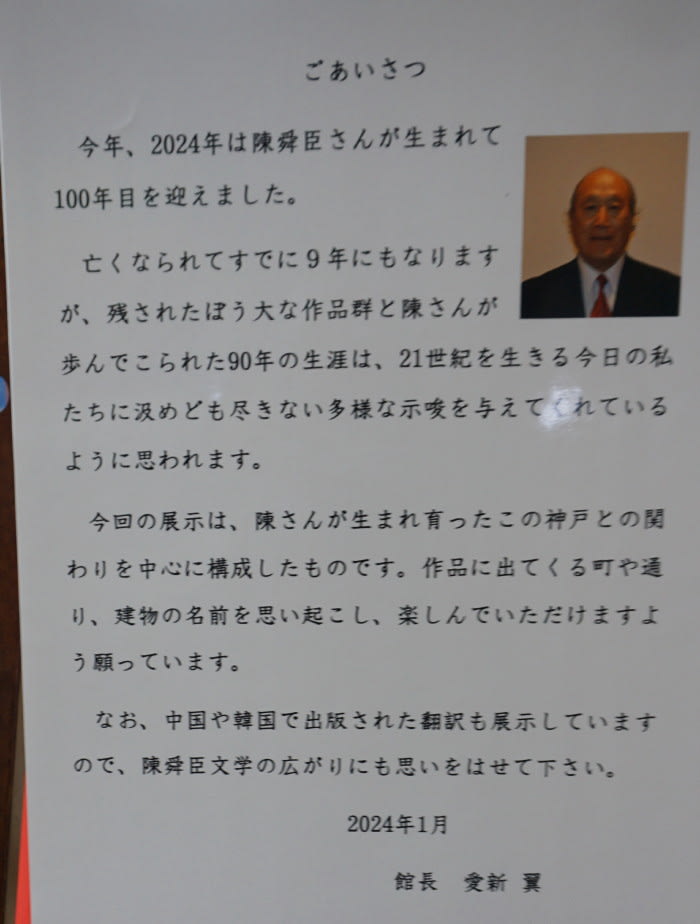 ごあいさつ
今年、2024年は陳舜臣さんが生まれて
100年目を迎えました。
亡くなられてすでに９年にもなります
が、残されたぼう大な作品群と陳さんが
歩んでこられた90年の生涯は、21世紀を生きる今日の私
たちに汲めども尽きない多様な示唆を与えてくれている
ように思われます。
今回の展示は、陳さんが生まれ育ったこの神戸との関
わりを中心に構成したものです。作品に出てくる町や通
り、建物の名前を思い起こし、楽しんでいただけますよ
う願っています。
なお、中国や韓国で出版された翻訳も展示しています
ので、陳舜臣文学の広がりにも思いをはせて下さい。
2024年1月
館長　愛新　翼